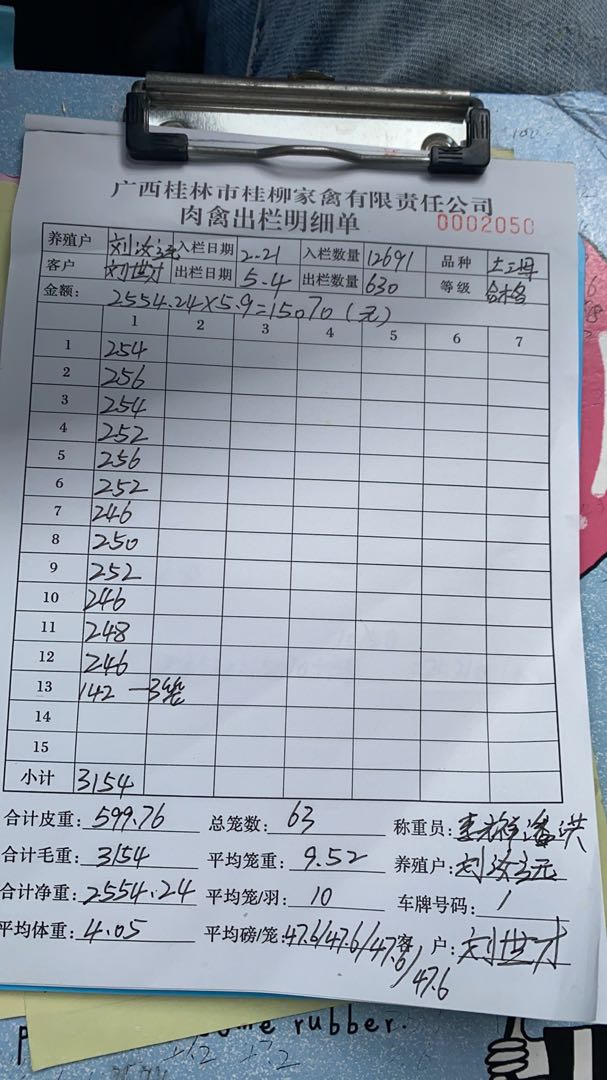 广西桂林市桂柳家禽有限责任公司
肉禽出栏明细单 0002050
养殖户 刘汝元 入栏日期 2.21 入栏数量 12691 品种 土二
客户 刘世才 出栏日期 5.4 出栏数量 630 等级 合格
金额: 2554.24×5.9=15070(元)
1 2 3 4 5 6 7
1 254
2 256
3 254
4 252
5 256
6 252
7 246
8 250
9 252
10 246
11 248
12 246
13 142 —3笼
14
15
小计 3154
合计皮重: 599.76 总笼数: 63 称重员:
合计毛重: 3154 平均笼重: 9.52 养殖户: 刘汝元
合计净重: 2554.24 平均笼/羽: 10 车牌号码: 1
平均体重: 4.05 平均磅/笼: 47.6/47.6/47.6/47.6 客户: 刘世才
me rubber.